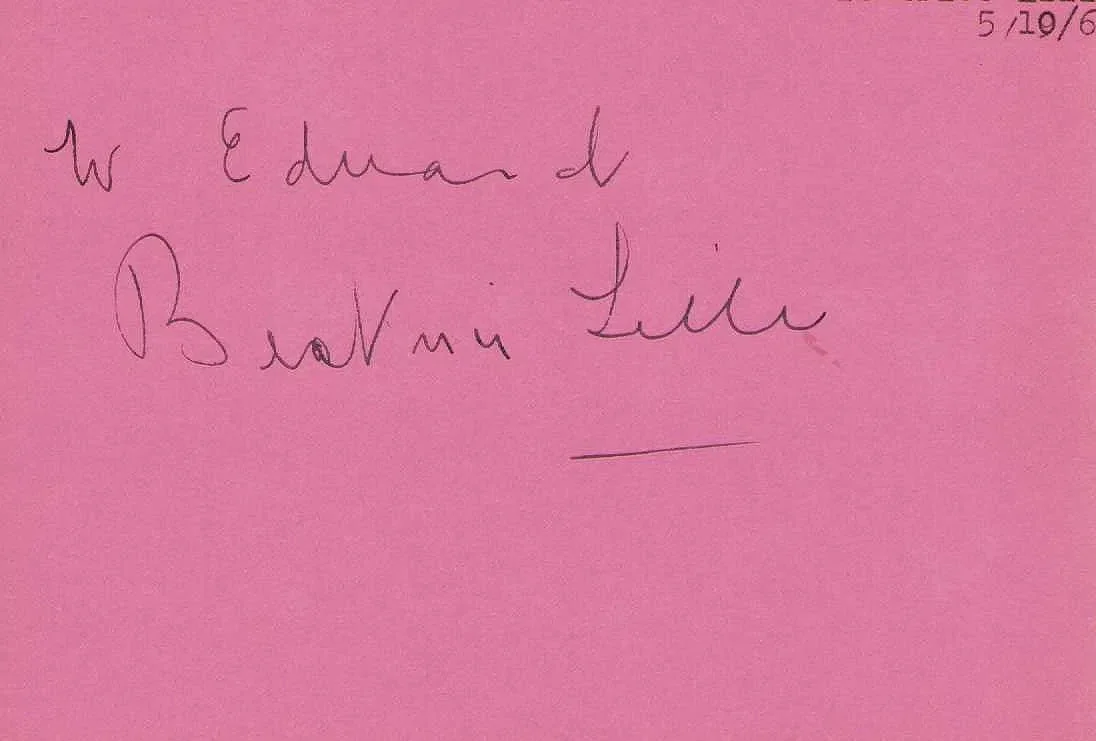 5/19/6
To Edward
Beatrice Lillie